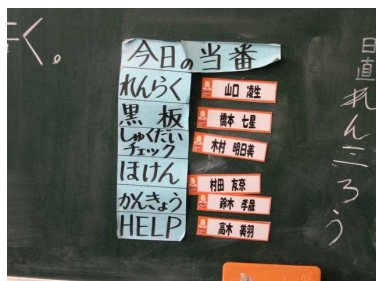 く。
今日の当番
れんらく 山口 凌生
黒板 橋本 七星
しゅくだい
チェック 木村 明日美
ほけん 村田 友奈
かんきょう 鈴木 孝晟
HELP 高木 美羽
日直
れんころう